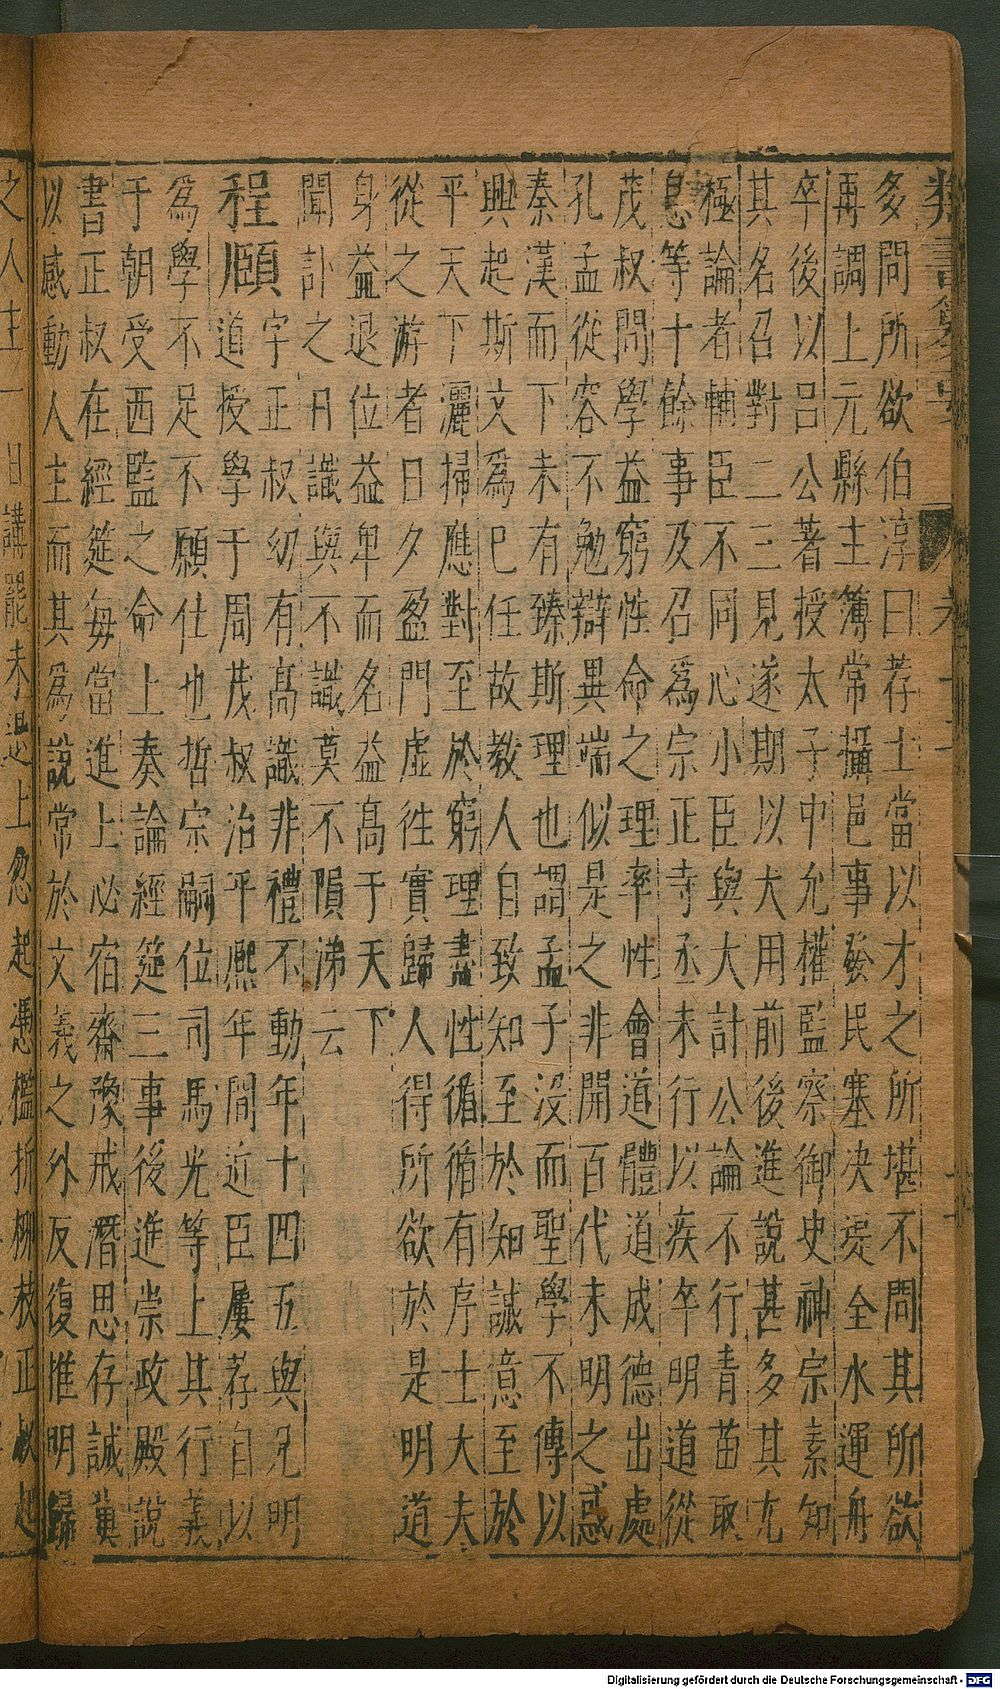 多問所欲伯淳曰荐士當以才之所堪不問其所欲
再調上元縣主簿常攝邑事發民塞决堤全水運舟
卒後以呂公著授太子中允權監察御史神宗素知
其名召對二三見遂期以大用前後進說甚多其尤
極論者輔臣不同心小臣與大計公論不行青苗取
息等十餘事及召為宗正寺丞未行以疾卒明道從
茂叔問學益窮性命之理率性會道體道成德出處
孔孟從容不勉辯異端似是之非開百代未明之惑
秦漢而下未有臻斯理也謂孟子没而聖學不傳以
興起斯文為己任故教人自致知至於知誠意至於
平天下灑掃應對至於窮理盡性循循有序士大夫
從之游者日夕盈門虛徃實歸人得所欲於是明道
身益退位益卑而名益高于天下
聞訃之日識與不識莫不隕涕云
程頤字正叔幼有高識非禮不動年十四五與兄明
道授學于周茂叔治平熈年間近臣屢荐自以
為學不足不願仕也哲宗嗣位司馬光等上其行義
于朝受西監之命上奏論經筵三事後進崇政殿說
書正叔在經筵每當進上必宿齋豫戒潛思存誠冀
以感動人主而其為說常於文義之外反復惟明歸
之人主一日講罷未退上忽起憑檻折柳枝正叔起
Digitalisierung gefördert durch die Deutsche Forschungsgemeinschaft - DFG